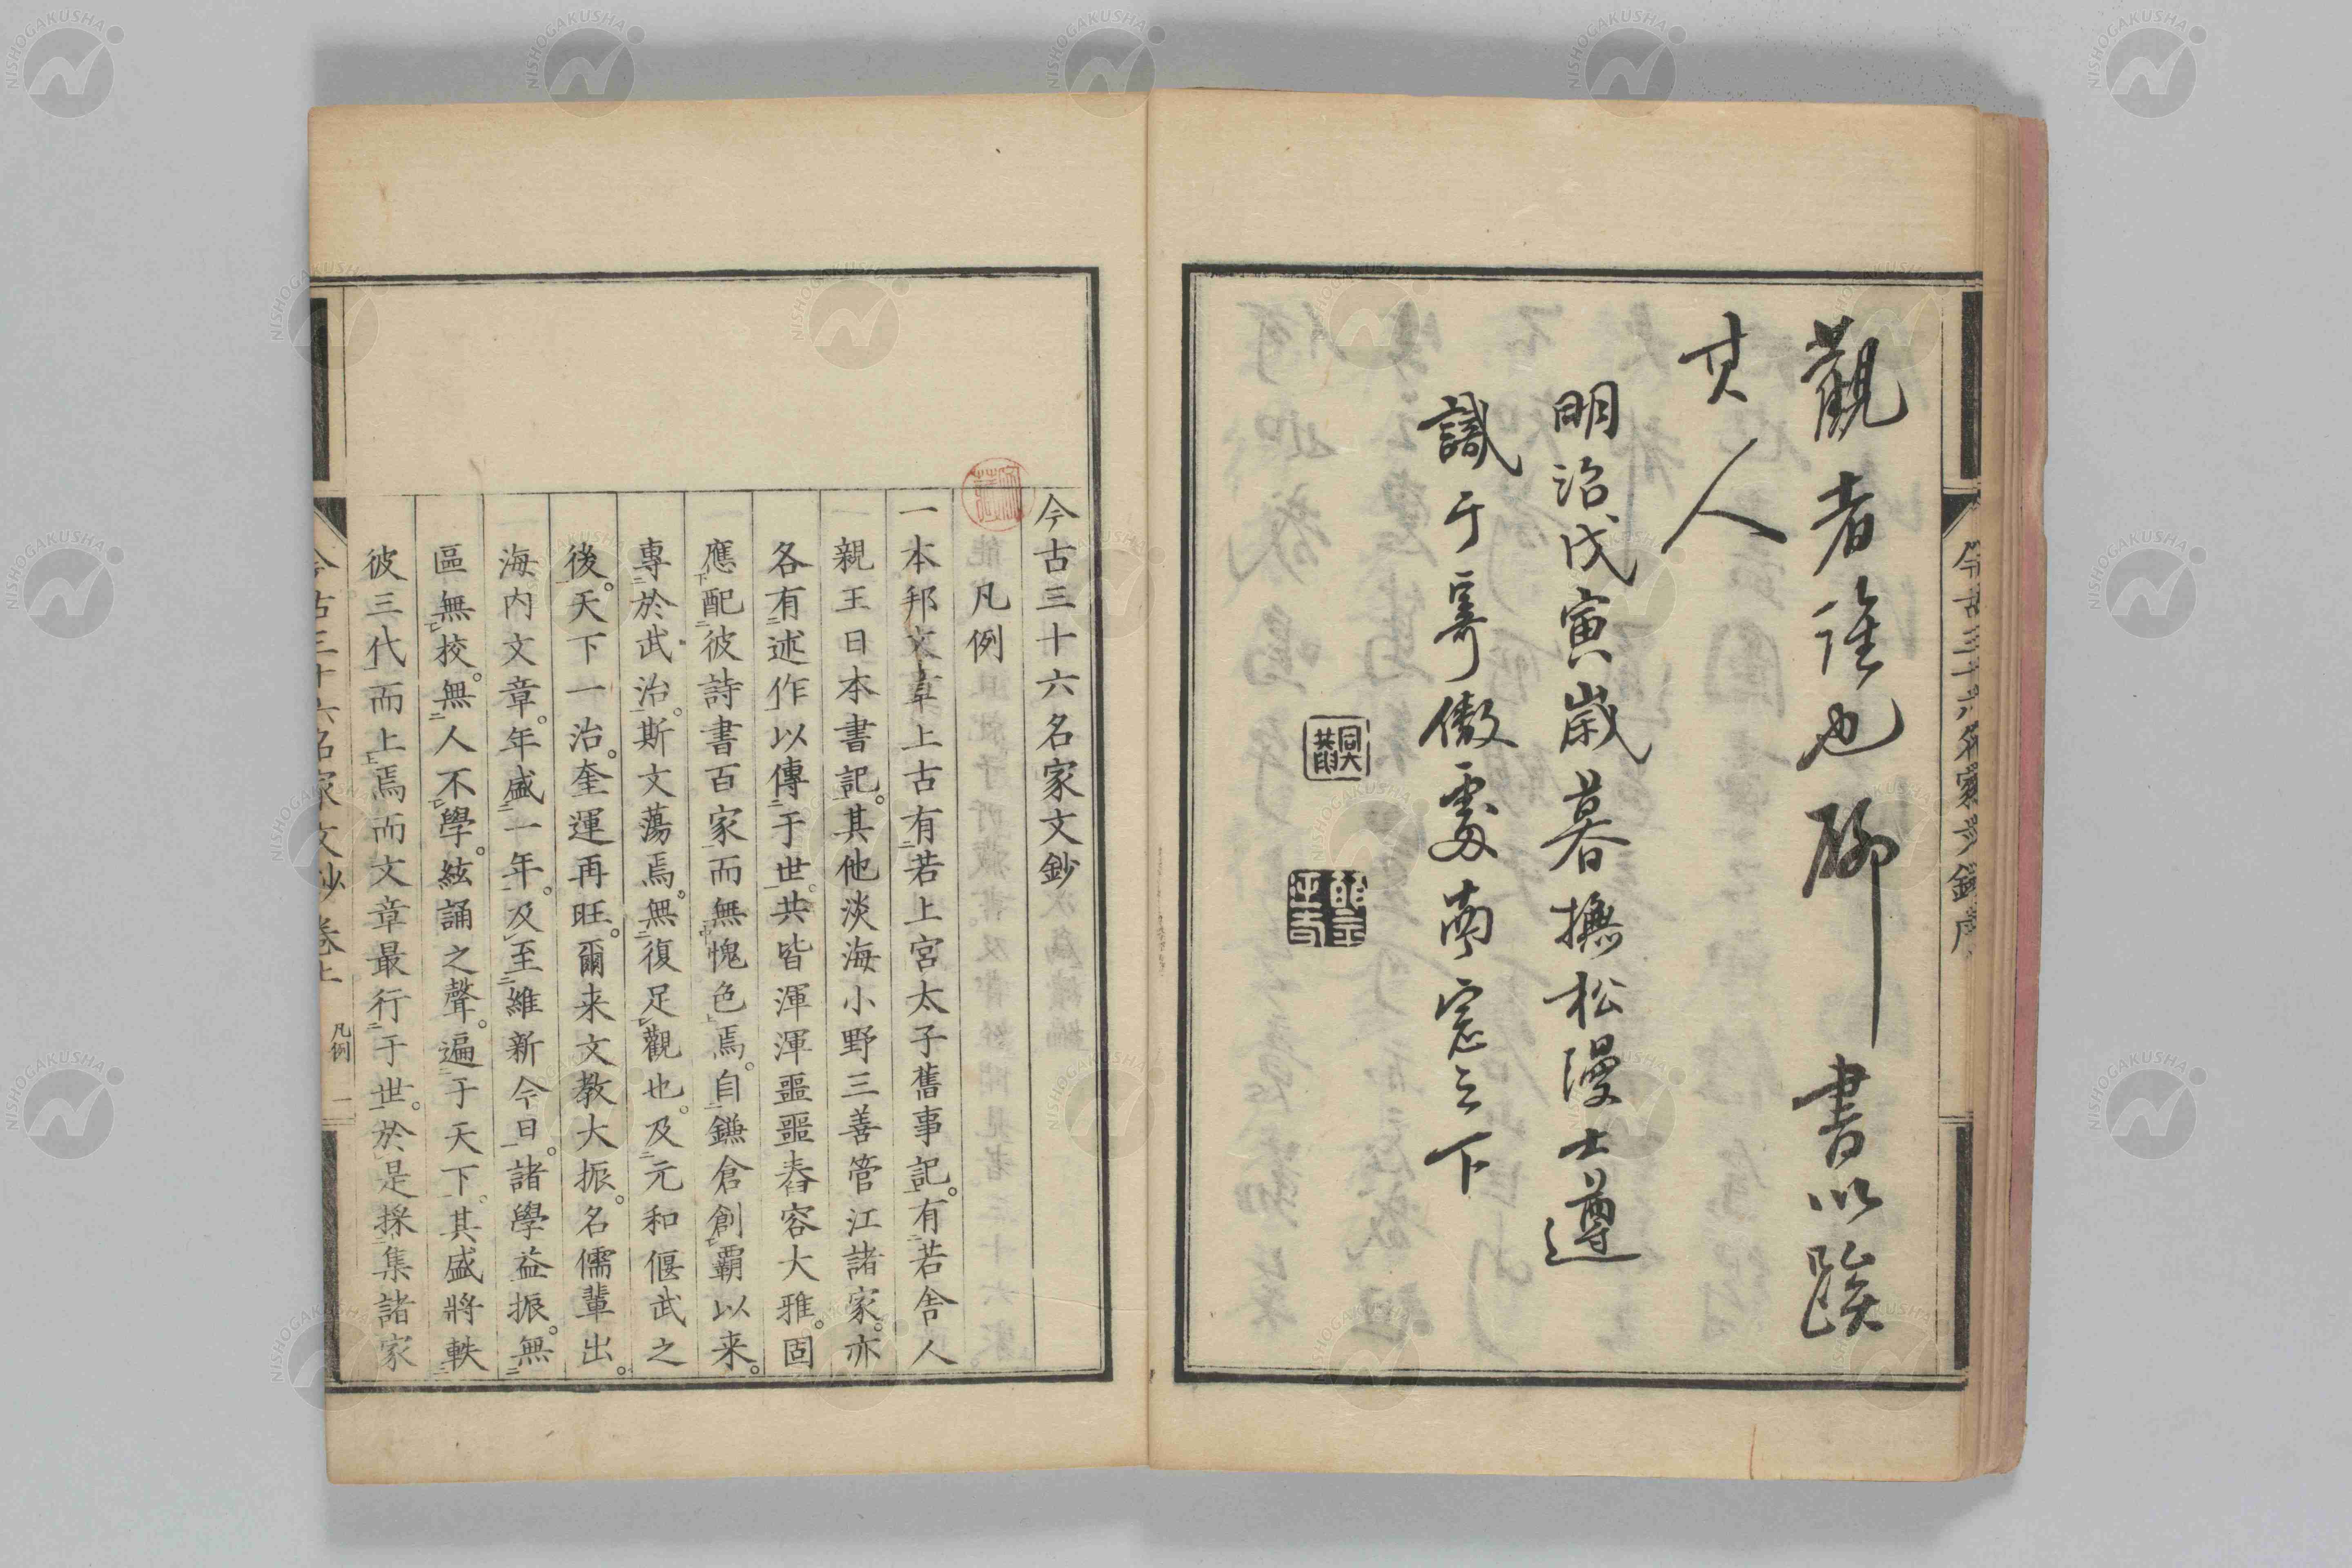 觀者誰也聊書以貽
其人
明治戊寅歲暮撫松漫士遵
識于寄傲處南窓之下
今古三十六名家文鈔序
今古三十六名家文鈔
凡例
一本邦文章上古有若上宮太子舊事記。有若舍人
親王日本書記。其他淡海小野三善管江諸家。亦
各有述作以傳于世。共皆渾渾噩噩舂容大雅。固
應配彼詩書百家而無愧色焉。自鎌倉創霸以来。
專於武治。斯文蕩焉。無復足觀也。及元和偃武之
後。天下一治。奎運再旺。爾来文教大振。名儒輩出。
海內文章。年盛一年。及至維新今日。諸學益振。無
區無校。無人不學。絃誦之聲。遍于天下。其盛將軼
彼三代而上焉而文章最行于世。於是採集諸家
今古三十六名家文鈔卷上 凡例 一
NISHOGAKUSHA